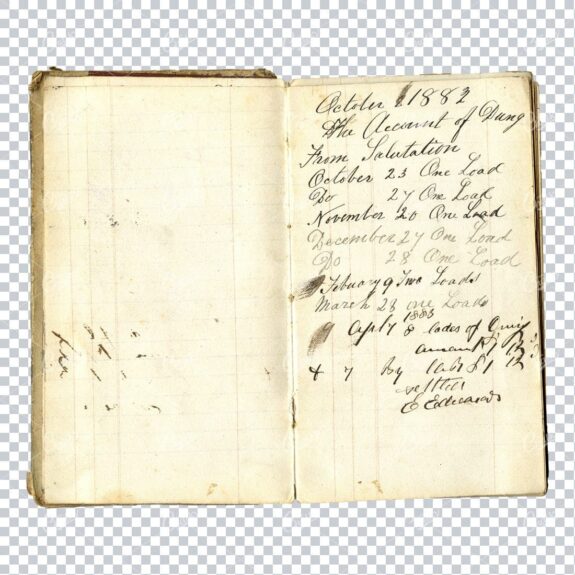 October 1882
The Account of Dung
From Salutation
October 23 One Load
Do 27 One Load
November 20 One Load
December 27 One Load
Do 28 One Load
Febuary 9 Two Loads
March 26 one Loads
1883
Apl 7 8 lodes of
amount
+ 7 by
settled
E Edwards